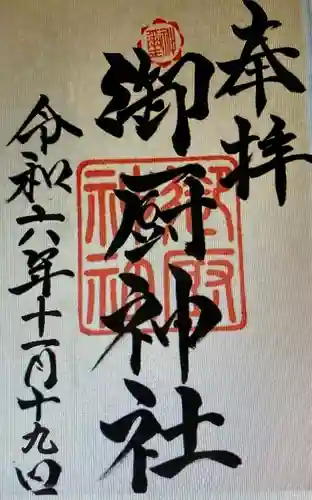 奉拝
御厨神社
令和六年十一月十九日
御厨神社